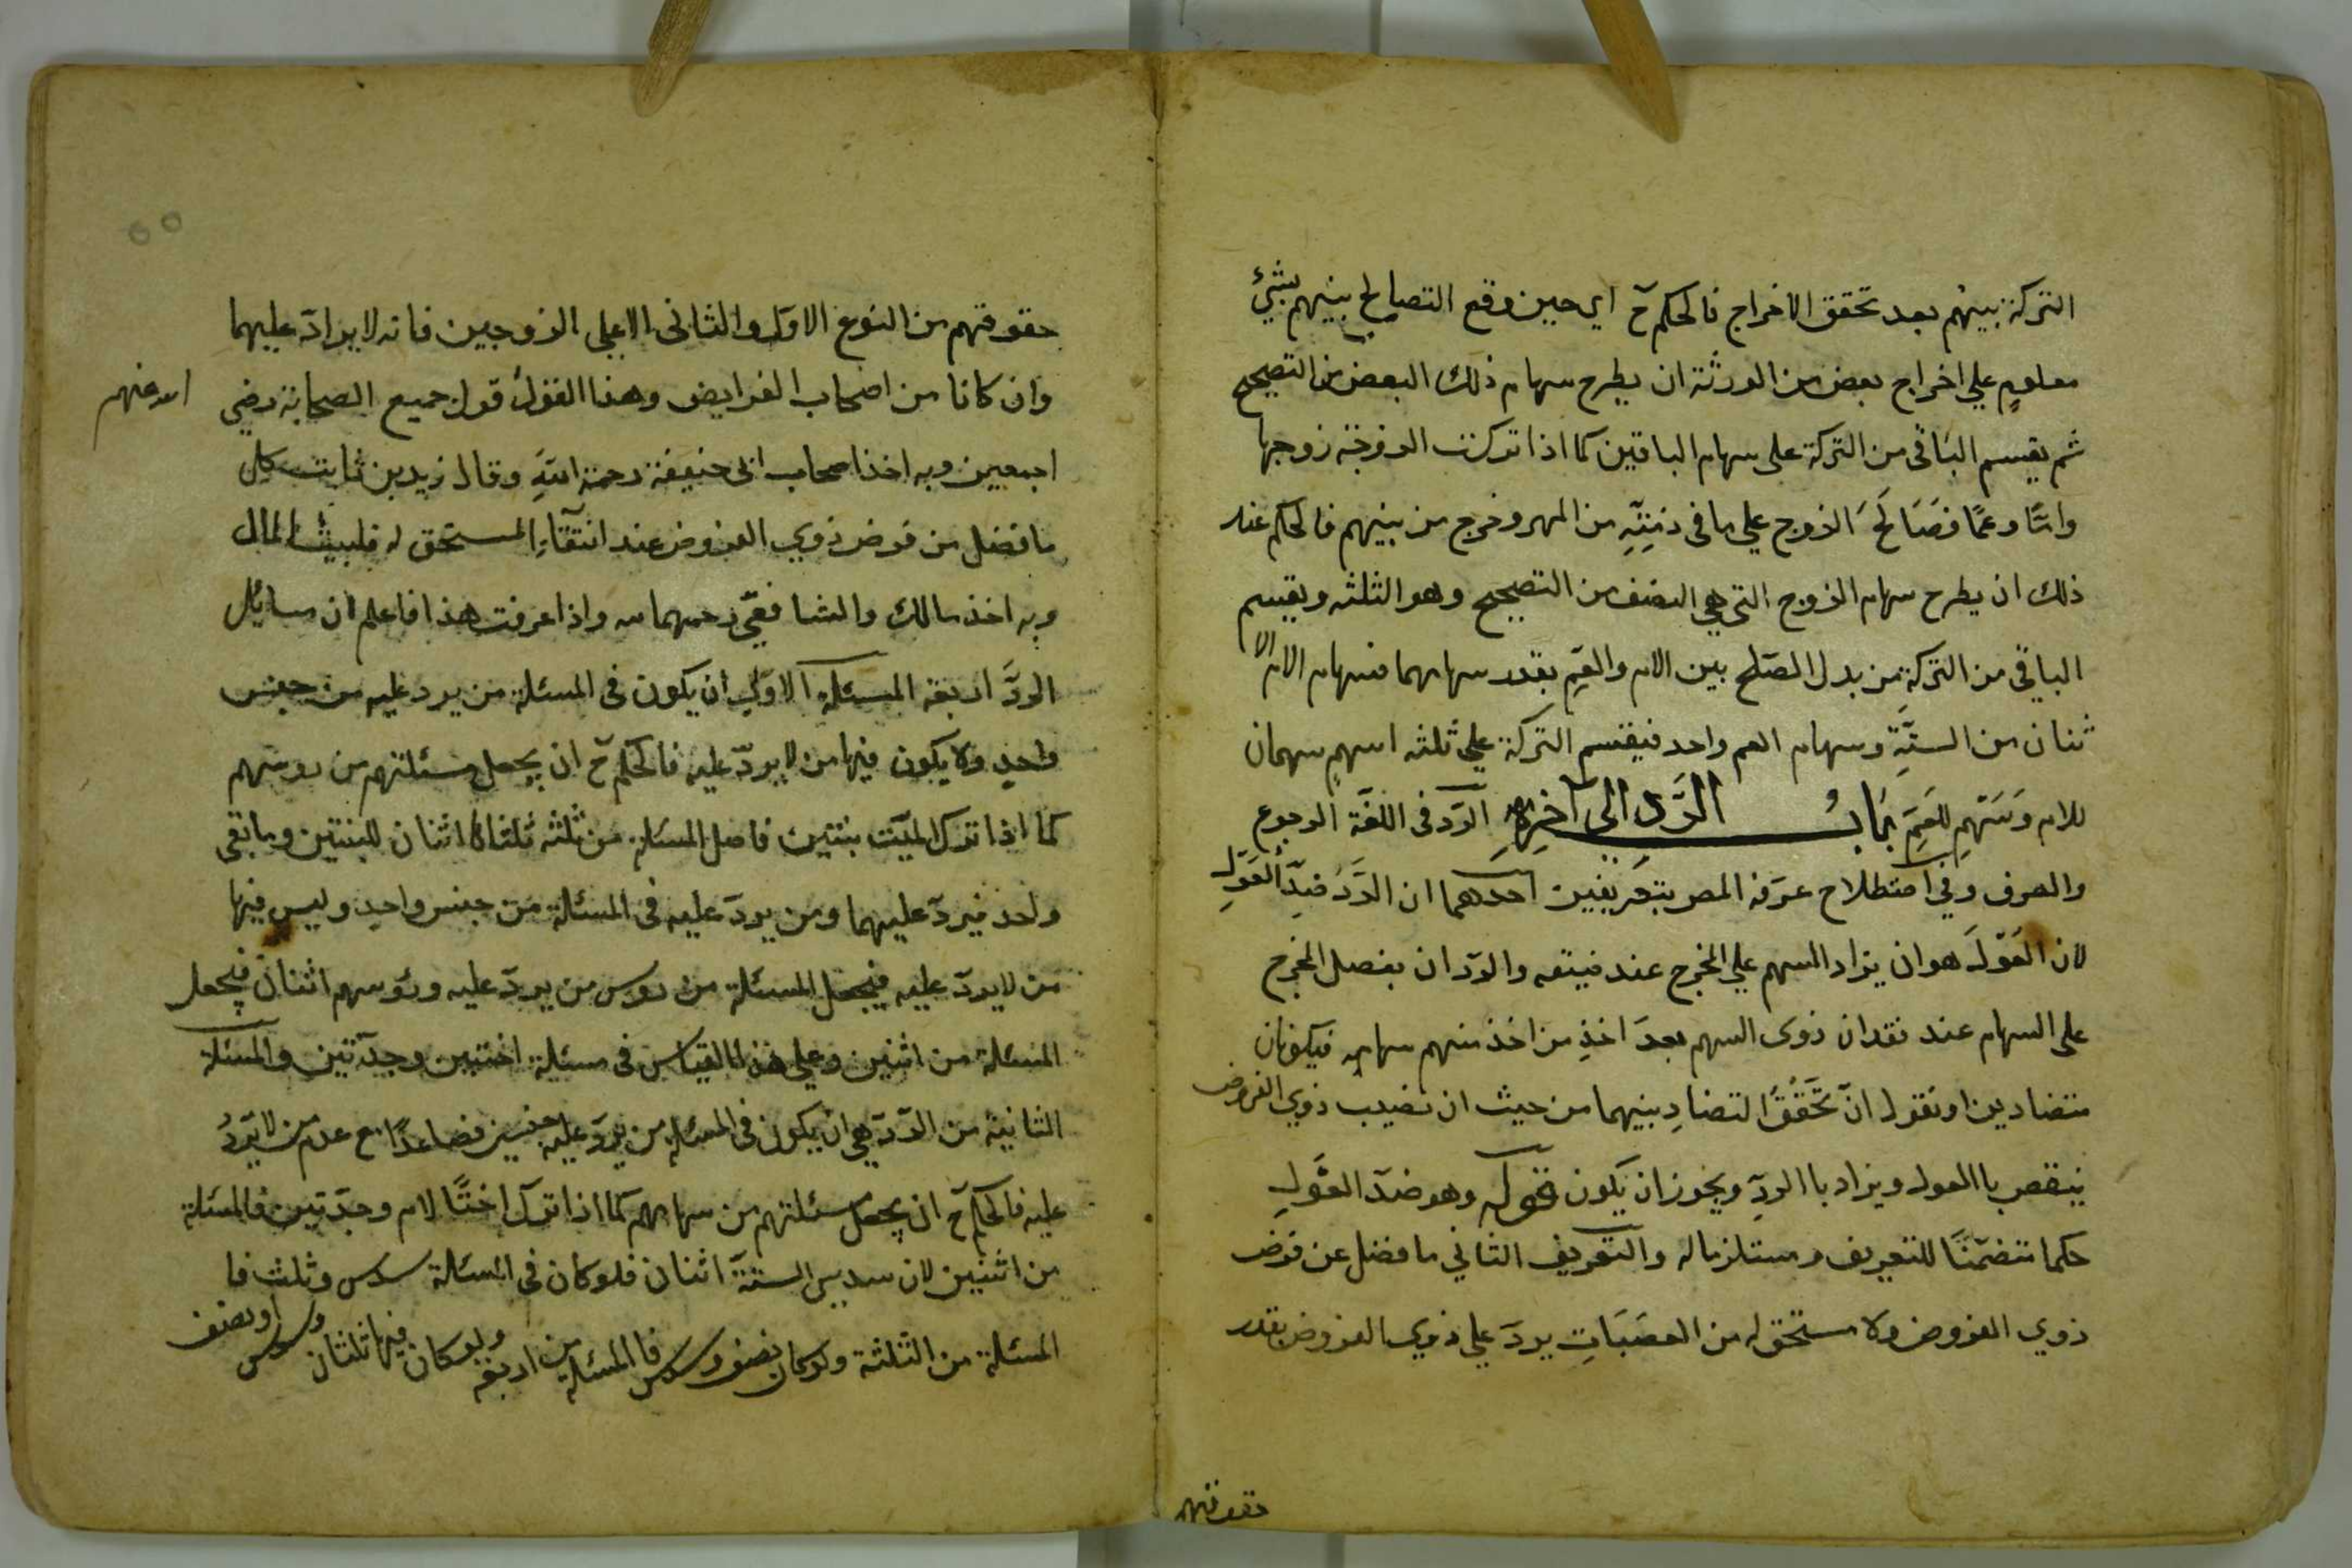 التركة بينهم بعد تحقق الاخراج فالحكم ح اي حين وقع التصالح بينهم بشئ
معلوم علي اخراج بعض من الورثة ان يطرح سهام ذلك البعض من التصحيح
ثم يقسم الباقى من التركة على سهام الباقين كما اذا تركت الزوجة زوجها
وامّا وعمّا فصَالَحَ الزوج علي ما في ذمّتِهِ من المهر وخرج من بينهم فالحكم عند
ذلك ان يطرح سهام الزوج التي هي النصف من التصحيح وهو الثلثه ويقسم
الباقي من التركة من بدل الصّلح بين الام والعَمِ بقدر سهامهما فسهام الام الا
ثنان من الستّةِ وسهام العم واحد فيقسم التركة علي ثلثه اسهم سهمان
للام وَسَهْمِ للعَمِّ بَابُ الرَّدِ الى آخرِهِ الرّد فى اللغَة الرجوع
والصرف وفي اصطلاح عرّفه المص بتعَريفين احدهما ان الرَدَ ضِدّ العَوْلِ
لان العَوْلَ هو ان يزاد السهم علي المخرج عند ضيقه والردّ ان يفضل المخرج
على السهام عند فقدان ذوى السهم بعدَ اخذِ من اخذ منهم سهامه فيكونان
متضادين او نقول انّ تَحَقُقَ التضادِ بينهما من حيث ان نصيب ذوي الفروض
ينقص باالعول ويزاد باالردِ ويجوز ان يكون قوله وهو ضدّ العَوْلِ
حكما متضمّنًا للتعريف ومستلزما له والتعريف الثاني ما فضل عن فرض
ذوي الفروض ولا مستحق له من العصَبَاتِ يردّ علي ذوي الفروض بقدر
حقوقهم
حقوقهم من النوع الاوّل والثانى الا على الزوجين فانه لا يرادّ عليهما
وان كانا من اصحاب الفرايض وهذا القول قول جميع الصحابة رضي
الله عنهم
اجمعين وبه اخذ اصحاب ابى حنيفة رحمة الله وقال زيد بن ثابت كل
ما فضل من فرض ذوي الفروض عند انتقآءِ المستحق له فلبيت المال
وبه اخذ مالك والشافعّي رحمهما الله واذا عرفت هذا فاعلم ان مسايل
الردّ اربعة المسئلة الاولي ان يكون فى المسئلة من يرد عليه من جنس
واحدٍ ولا يكون فيها من لا يردّ عليه فالحكم ح ان يجعل مسئلتهم من روسهم
كما اذا ترك الميّت بنتين فاصل المسئلة من ثلثه ثلثاها اثنان للبنتين وما بقى
واحد فيردّ عليهما ومن يردّ عليه فى المسئلة من جنس واحدٍ وليس فيها
من لا يردّ عليه فيجعل المسئلة من روس من يردّ عليه ورؤسهم اثنان فيجعل
المسئلة من اثنين وعلي هذا القياس فى مسئلة اختين وجدّتين والمسئلة
الثانية من الردّ هي ان يكون فى المسئلة من يردّ عليه جنسين فصاعدًا مع عدم من لا يَردُ
عليه فالحكم ح ان يجعل مسئلتهم من سهامهم كما اذا ترك اختًا لام وجدّتين فالمسئلة
من اثنين لان سديس الستّة اثنان فلو كان فى المسئلة سدس وثلث فا
المسئلة من الثلثة ولو كان نصف وسدس فا المسئلة من اربعة ولو كان فيها ثلثان وسدس او نصف